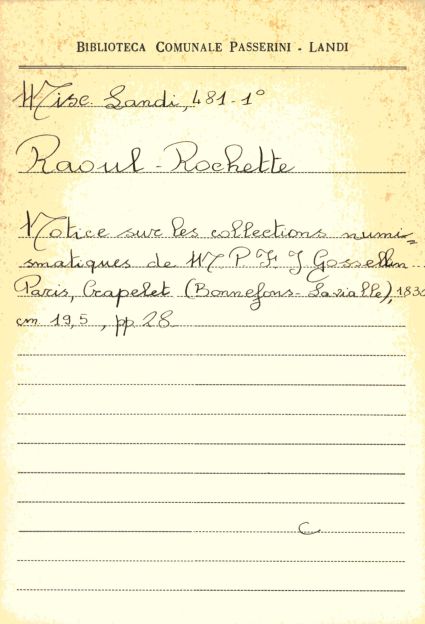 BIBLIOTECA COMUNALE PASSERINI - LANDI
Misc. Landi, 481-1°
Raoul-Rochette
Notice sur les collections numi=
smatiques de M P. F. J Gossellin
Paris, Crapelet (Bonnefons-Lavialle), 1830
cm 19,5, pp 28
C